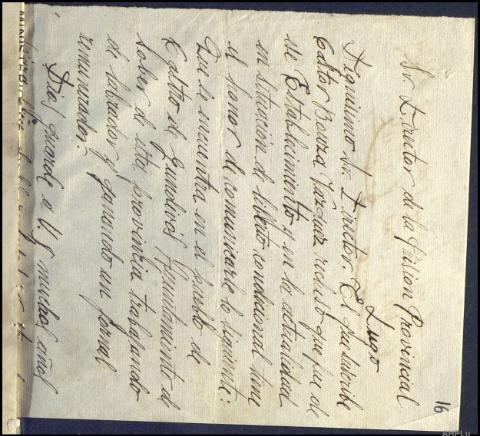 16
Sr Director de la Prision Provincial
Lugo
Dignisimo Sr. Director. El que subscribe
Castor Bouza Vazquez recluso que fue de
ese Establecimiento y en la actualidad
en situación de liberto condicional tiene
el honor de comunicarle lo siguiente:
Que se encuentra en el pueblo de
Castro de Gundivos Ayuntamiento de
Sober de esta provincia trabajando
de labrador y ganando un jornal
remunerador.
Dios guarde a V. S muchos años